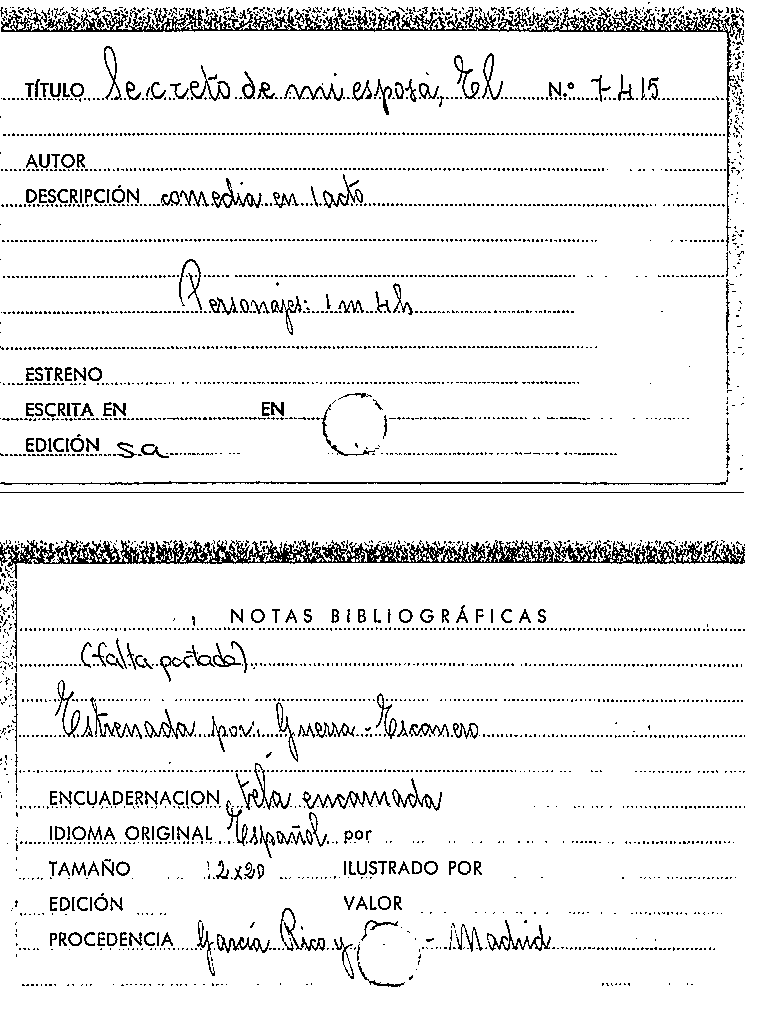 TÍTULO Secreto de mi esposa, El N.º 7415
AUTOR
DESCRIPCIÓN comedia en 1 acto
Personajes: 1 m 4 h
ESTRENO
ESCRITA EN EN
EDICIÓN sa
NOTAS BIBLIOGRÁFICAS
(falta portada)
Estrenada por: Guerra - Escanero
ENCUADERNACION tela encarnada
IDIOMA ORIGINAL Español por
TAMAÑO 12x20 ILUSTRADO POR
EDICIÓN VALOR
PROCEDENCIA García Rico y - Madrid